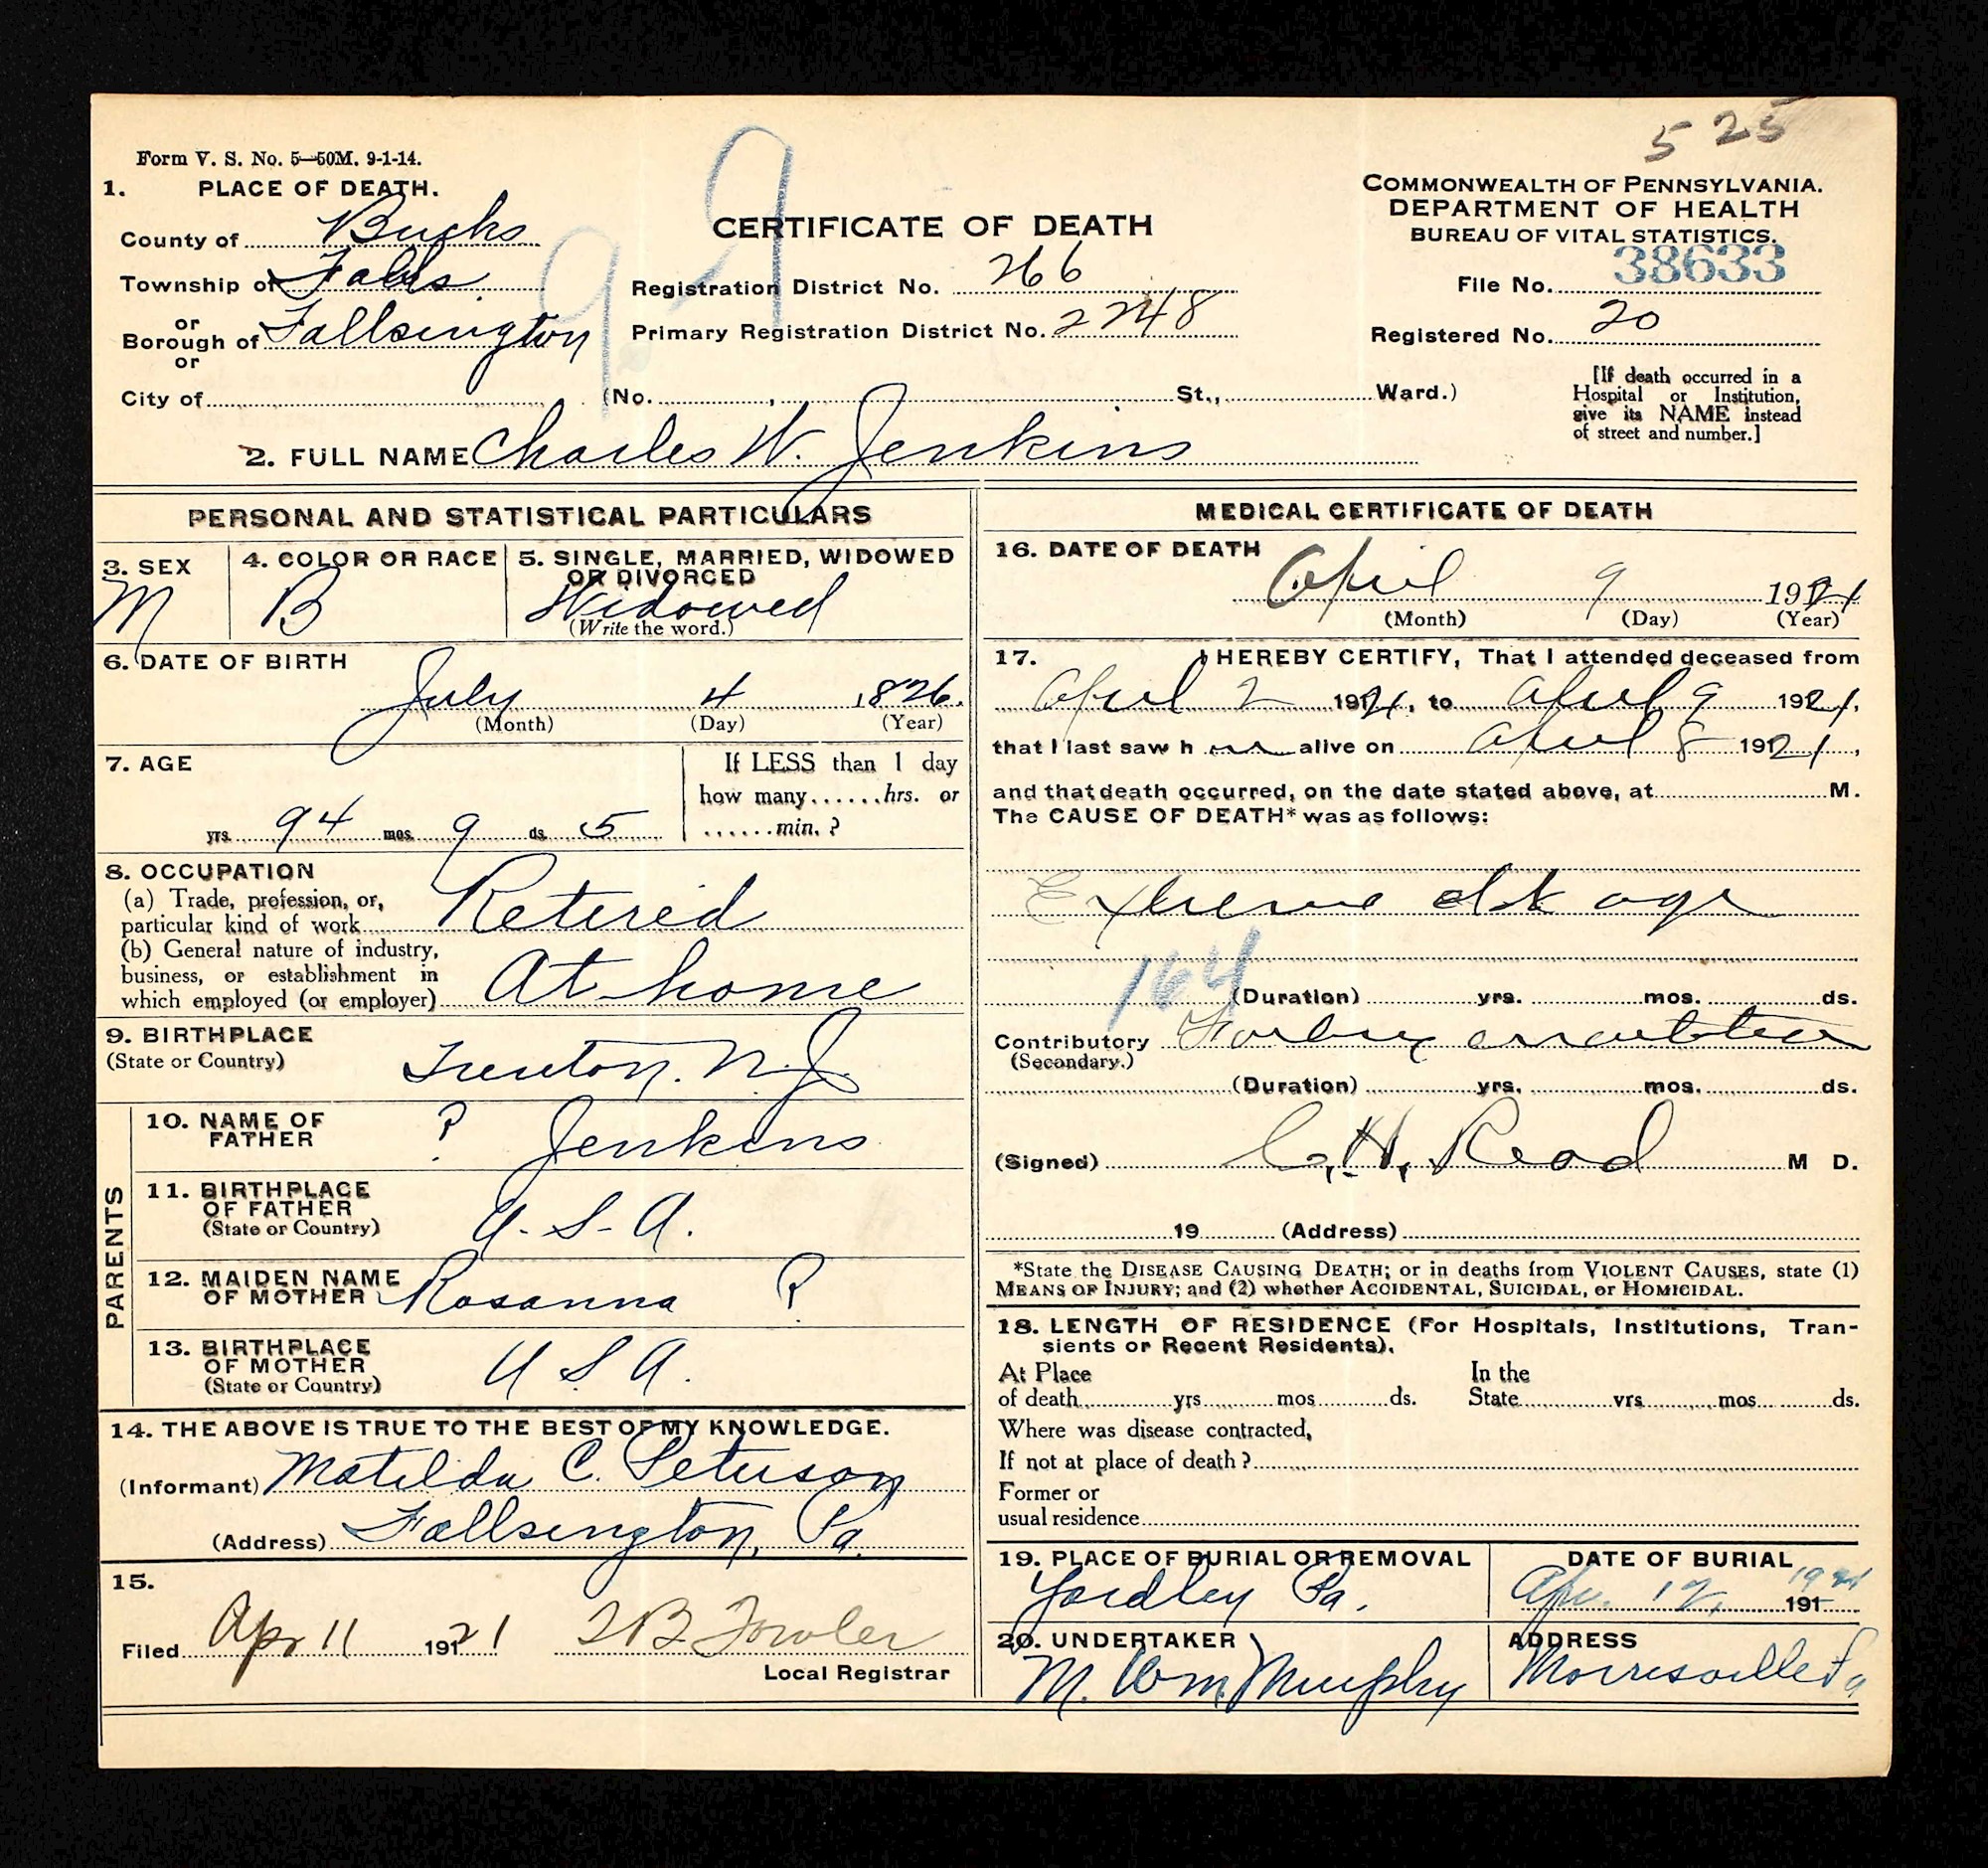 525
Form V. S. No. 5—50M. 9-1-14.
1. PLACE OF DEATH.
County of Bucks
Township of Falls
or
Borough of Fallsington
or
City of
99
CERTIFICATE OF DEATH
Registration District No. 266
Primary Registration District No. 2248
(No. , St., Ward.)
COMMONWEALTH OF PENNSYLVANIA.
DEPARTMENT OF HEALTH
BUREAU OF VITAL STATISTICS.
File No. 38633
Registered No. 20
[If death occurred in a
Hospital or Institution,
give its NAME instead
of street and number.]
2. FULL NAME Charles W. Jenkins
PERSONAL AND STATISTICAL PARTICULARS
3. SEX
M
4. COLOR OR RACE
B
5. SINGLE, MARRIED, WIDOWED
OR DIVORCED
Widowed
(Write the word.)
6. DATE OF BIRTH
July 4 1826.
(Month) (Day) (Year)
7. AGE
yrs. 94 mos. 9 ds. 5
If LESS than 1 day
how many......hrs. or
......min. ?
8. OCCUPATION
(a) Trade, profession, or,
particular kind of work Retired
(b) General nature of industry,
business, or establishment in
which employed (or employer) At home
9. BIRTHPLACE
(State or Country) Trenton. N.J.
PARENTS
10. NAME OF
FATHER ? Jenkins
11. BIRTHPLACE
OF FATHER
(State or Country) U.S.A.
12. MAIDEN NAME
OF MOTHER Rosanna ?
13. BIRTHPLACE
OF MOTHER
(State or Country) U S A.
14. THE ABOVE IS TRUE TO THE BEST OF MY KNOWLEDGE.
(Informant) Matilda C. Peterson
(Address) Fallsington, Pa.
15.
Filed Apr 11 1921 Fowler
Local Registrar
MEDICAL CERTIFICATE OF DEATH
16. DATE OF DEATH
April 9 1921
(Month) (Day) (Year)
17. I HEREBY CERTIFY, That I attended deceased from
April 2 1921, to April 9 1921,
that I last saw h im alive on April 8 1921,
and that death occurred, on the date stated above, at M.
The CAUSE OF DEATH* was as follows:
Extreme old age
164
(Duration) yrs. mos. ds.
Contributory
(Secondary.)
(Duration) yrs. mos. ds.
(Signed) C. H. Read M D.
19 (Address)
*State the DISEASE CAUSING DEATH; or in deaths from VIOLENT CAUSES, state (1)
MEANS OF INJURY; and (2) whether ACCIDENTAL, SUICIDAL, or HOMICIDAL.
18. LENGTH OF RESIDENCE (For Hospitals, Institutions, Tran-
sients or Recent Residents).
At Place In the
of death yrs mos ds. State yrs mos ds.
Where was disease contracted,
If not at place of death ?
Former or
usual residence
19. PLACE OF BURIAL OR REMOVAL
Yardley Pa.
DATE OF BURIAL
Apr. 12, 191 1921
20. UNDERTAKER
M. Wm. Murphy
ADDRESS
Morrisville Pa